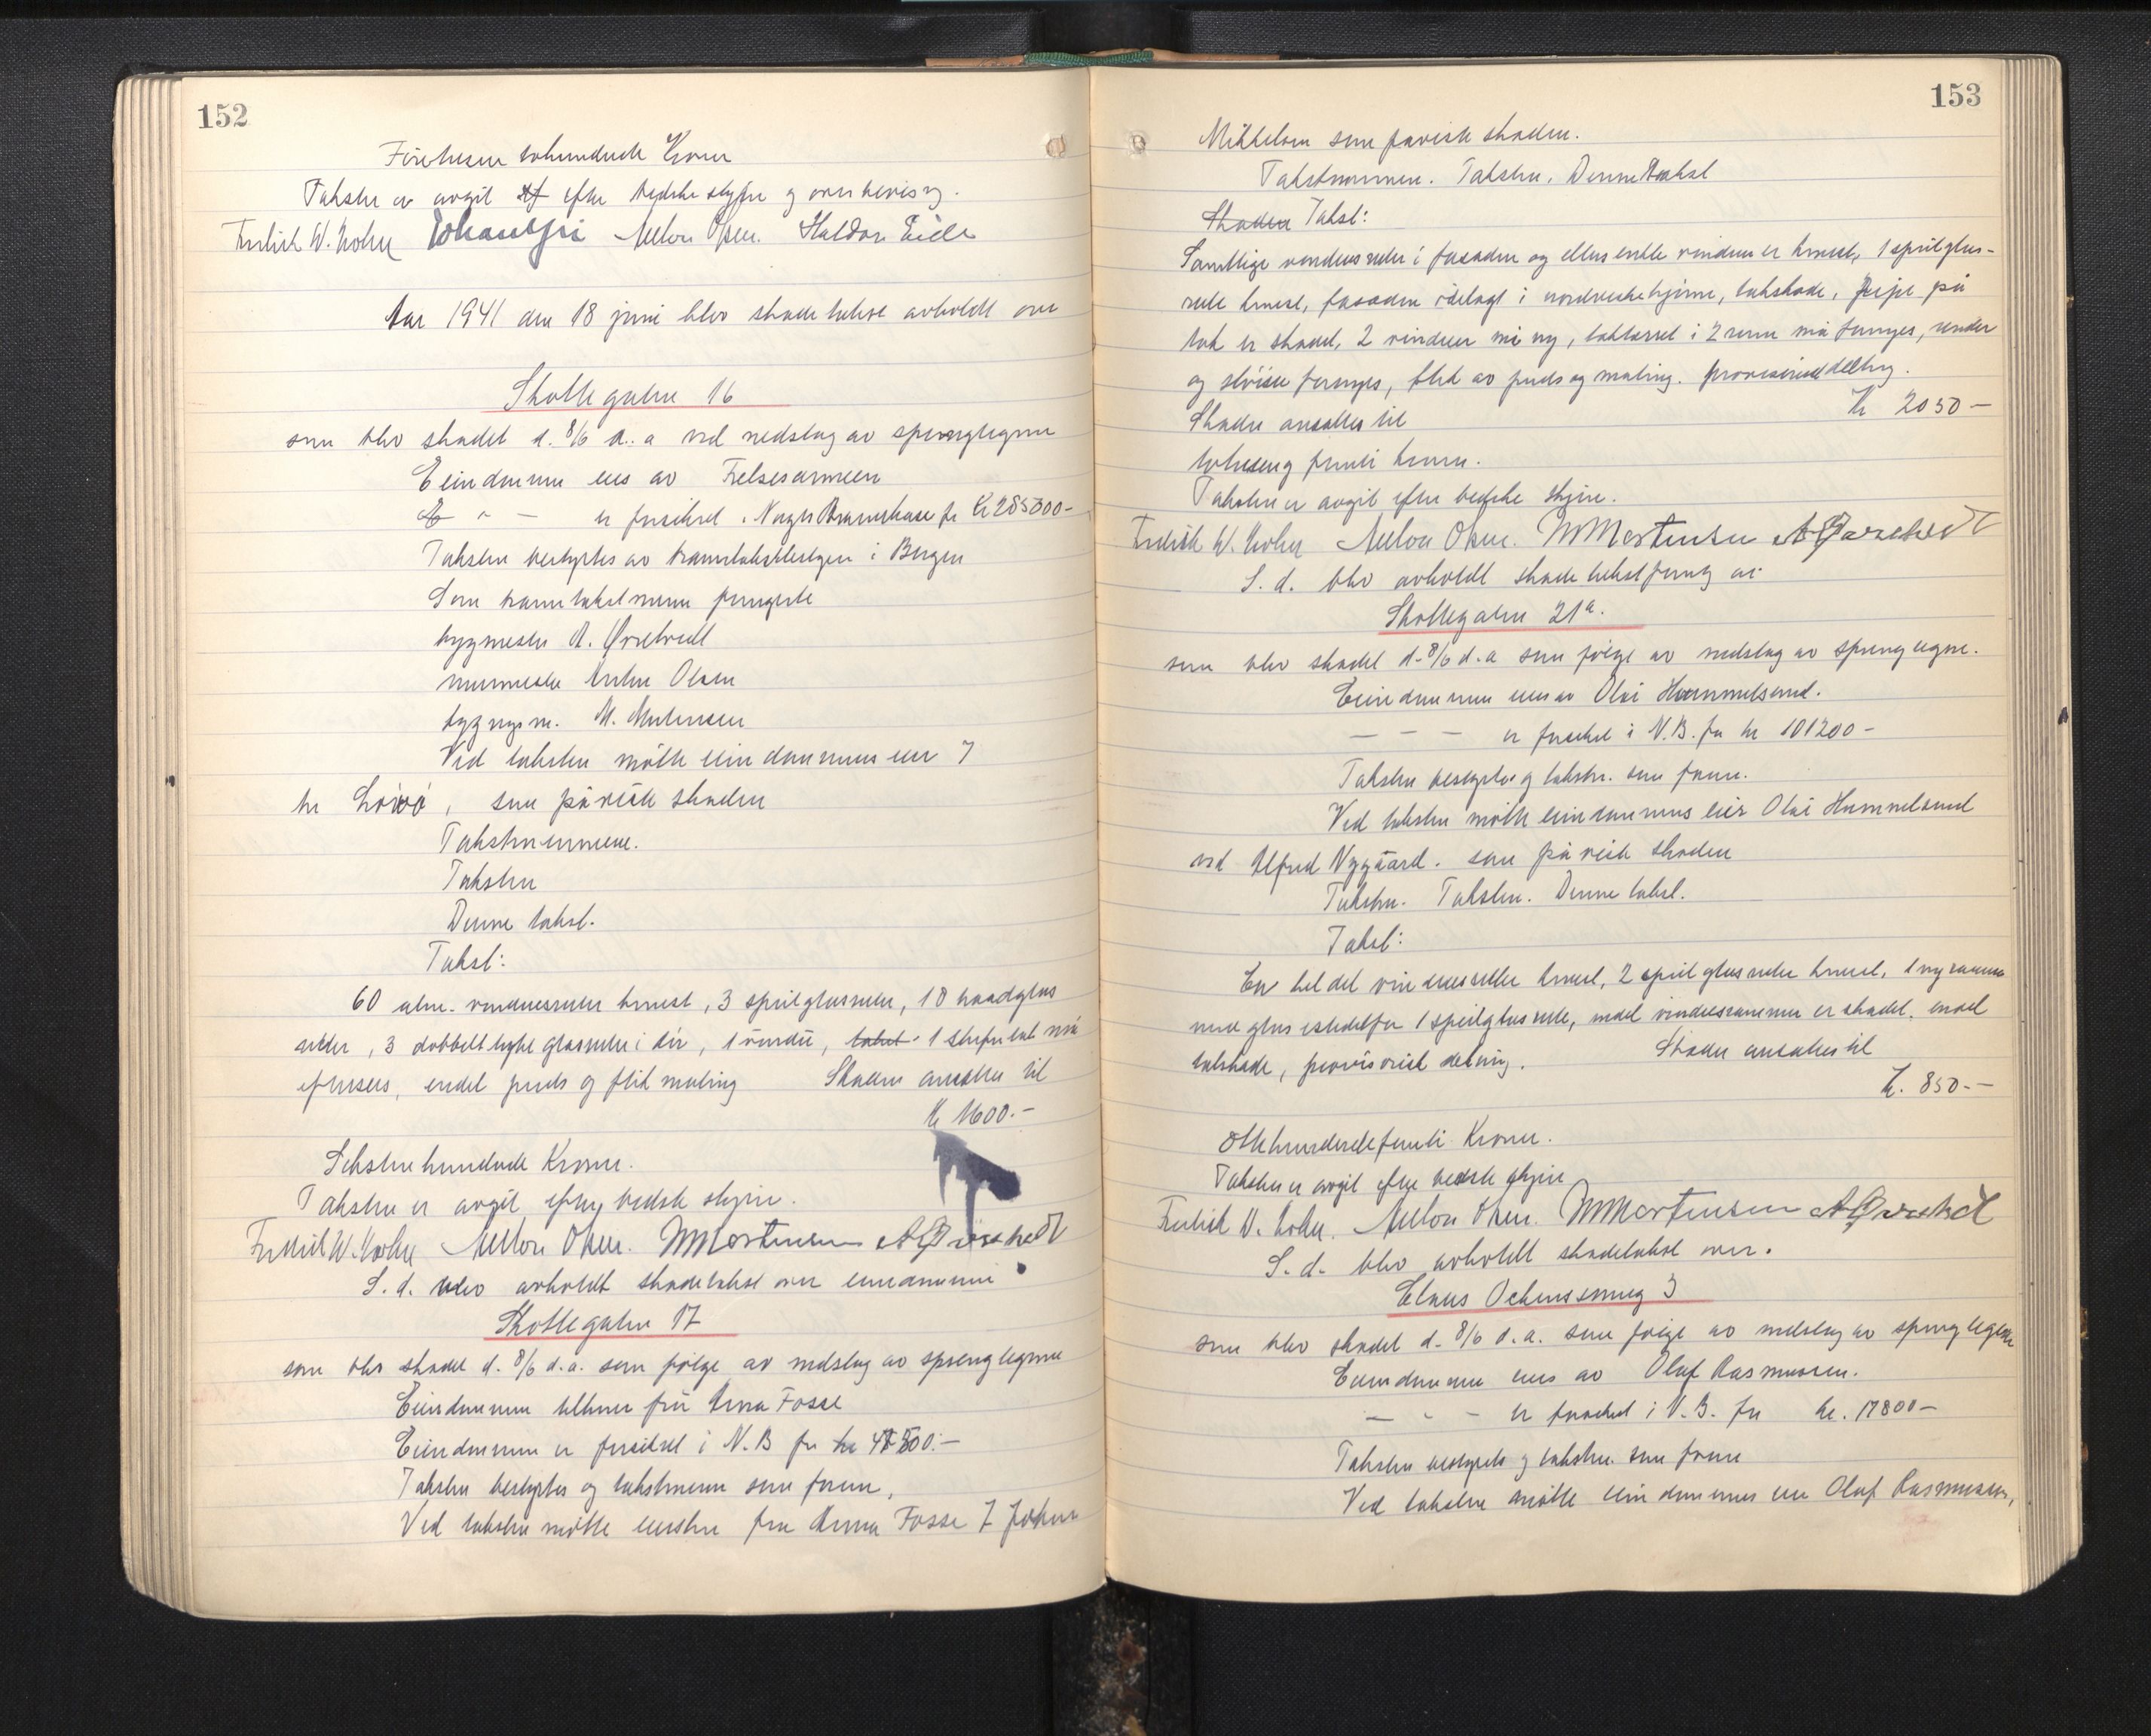 152
Kroner
Taksten er avgit efter bedste skjøn og overbevisning.
Fredrik W. Anton Olsen. Haldor Eide
Aar 1941 den 18 juni blev skadetakst avholdt over
Skottegaten 16
som blev skadet d. 8/6 d. a ved nedslag av sprenglegeme
Eiendommen eies av Frelsesarmeen
" - er forsikret i Norges Brannkasse for kr 285000-
Taksten bestyrtes av branntakstbestyrer i Bergen
Som branntakstmenn fungerte
bygmester A. Ørstvedt
murmester Anton Olsen
bygnigsm. M. Mortensen
Ved taksten møtte eiendommens eier v
hr , som påviste skaden
Takstmennene.
Taksten
Denne takst.
Takst:
60 alm. vinduesruter knust, 3 speilglasruter, 10 raadglas
ruter, 3 dobbelt tykke glassruter i dør, 1 vindu, takst 1 skifertak må
eftersees, endel puds og flik maling Skaden ansættes til
Kr 1600.-
Sekstenhundrede Kroner.
Taksten er avgit efter bedste skjøn.
Fredrik W. Anton Olsen. M Mortensen A Ørstvedt
S. d. blev avholdt skadetakst over eiendommen
Skottegaten 17
som blev skadet d. 8/6 d.a. som følge av nedslag av sprenglegeme
Eiendommen tilhører frü Anna Fosse
Eiendommen er forsikret i N.B for kr
Taksten bestyrtes og takstmenn som foran,
Ved taksten møtte eiersken fru Anna Fosse v
153
Mikkelsen som paviste skaden.
Takstmennene. Taksten. Denne takst
Skaden Takst:
Samtlige vinduesruter i fasaden og ellers enkle vinduer er knust, 1 speilglas-
rute knust, fasaden ødelagt i nordvestre hjørne, takskade, pipe på
tak er skadet, 2 vinduer må ny, i 2 rum må fornyes,
og fornyes, flek av puds og maling. provisorisk dekning.
Skaden ansættes til Kr 2050-
totusen og femti kroner.
Taksten er avgit efter bedste skjøn.
Fredrik W. Anton Olsen. M Mortensen A Ørstvedt
S. d. blev avholdt skadetakst
Skottegaten 21a.
som blev skadet d. 8/6 d. a som følge av nedslag av sprenglegeme.
Eiendommen eies av Olai Hummelsund.
- - - er forsikret i N.B. for kr 101200-
Taksten bestyrtes og takstm. som foran.
Ved taksten møtte eiendommens eier Olai Hummelsund
ved Alfred Nygaard. som påviste skaden
Takstm. Taksten. Denne takst.
Takst:
En hel del vinduesruter knust, 2 speilglasruter knust, 1 ny ramme
med glas istedetfor 1 speilglasrute, endel vinduesrammer er skadet, endel
takskade, provisorisk dekning. Skaden ansættes til
Kr. 850.-
Ottehundredefemti Kroner.
Taksten er avgit efter bedste skjøn
Fredrik W. Anton Olsen. M Mortensen A Ørstvedt
S. d. blev avholdt skadetakst over.
Claus Ockens smug 3
som blev skadet d. 8/6 d.a. som følge av nedslag av sprenglegeme
Eiendommen eies av Olaf Rasmussen.
- - - er forsikret i N.B. for kr. 17800-
Taksten bestyrtes og takstm. som foran
Ved taksten møtte eiendommens eier Olaf Rasmussen,